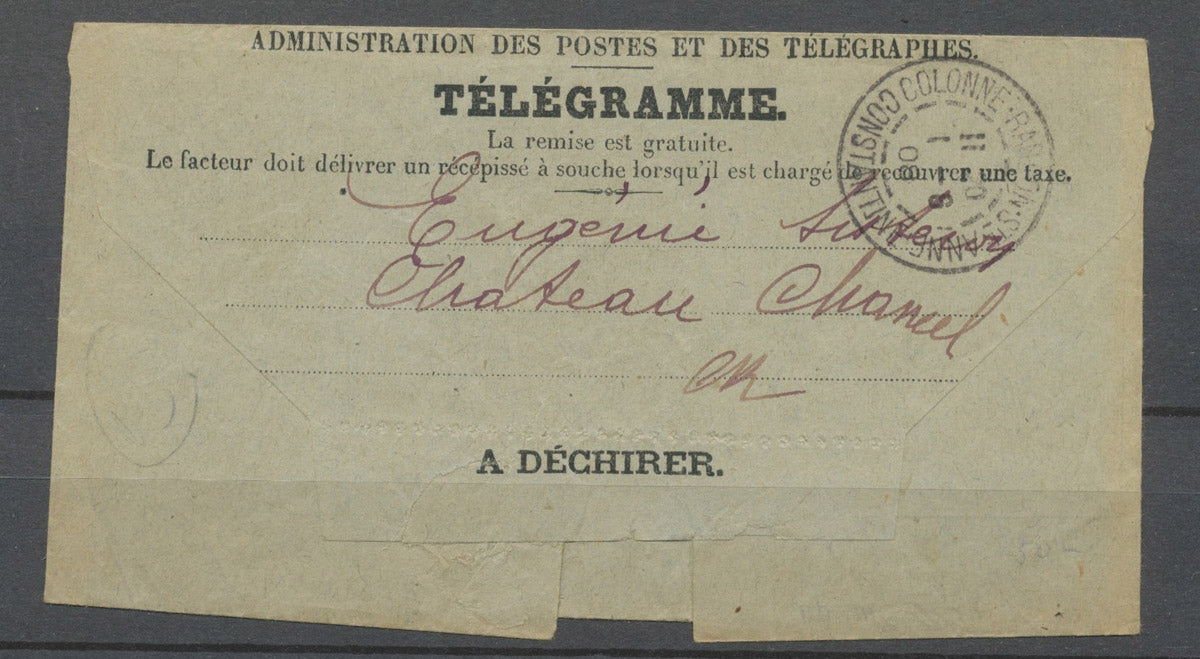 ADMINISTRATION DES POSTES ET DES TÉLÉGRAPHES.
TÉLÉGRAMME.
La remise est gratuite.
Le facteur doit délivrer un récépissé à souche lorsqu'il est chargé de recouvrer une taxe.
COLONNE-RANDON
CONSTANTINE
Eugénie
Chateau Chancel
A DÉCHIRER.